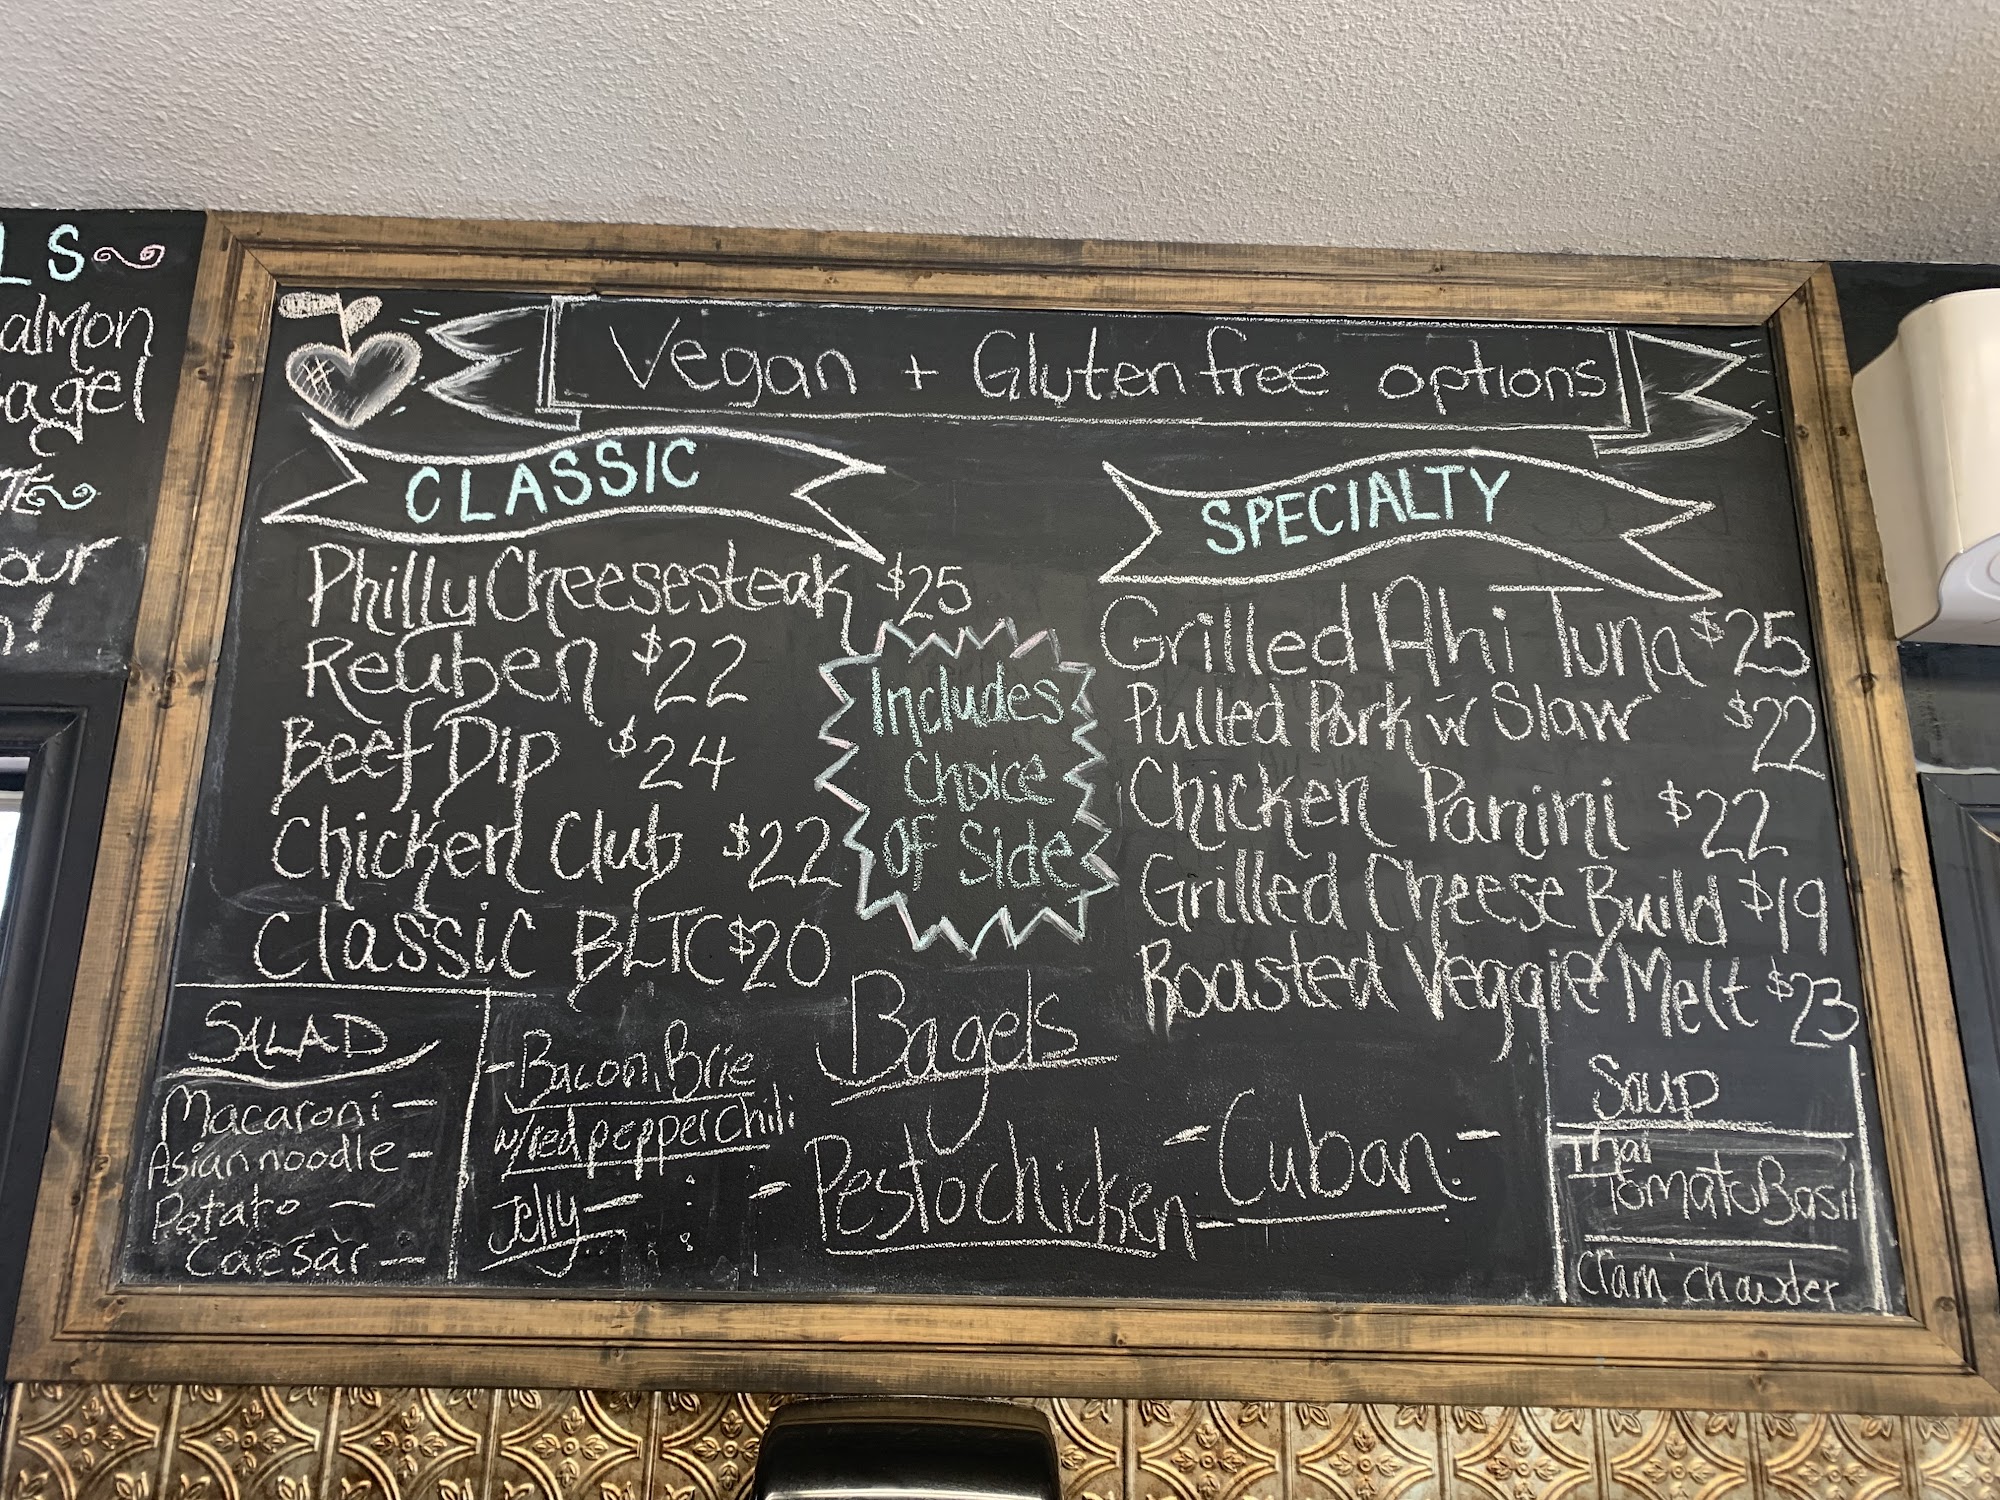 LS
almon
agel
our
!
Vegan + Gluten free options
CLASSIC
Philly Cheesesteak $25
Reuben $22
Beef Dip $24
Chicken Club $22
Classic BLTC $20
Includes
Choice
OF Side
SPECIALTY
Grilled Ahi Tuna $25
Pulled Pork w Slaw $22
Chicken Panini $22
Grilled Cheese Build $19
Roasted Veggie Melt $23
SALAD
Macaroni -
Asian noodle -
Potato -
Caesar -
Bagels
- Bacon, Brie
w/ red pepper chili
Jelly -
- Pesto chicken -
- Cuban -
Soup
Thai
Tomato Basil
Clam chowder